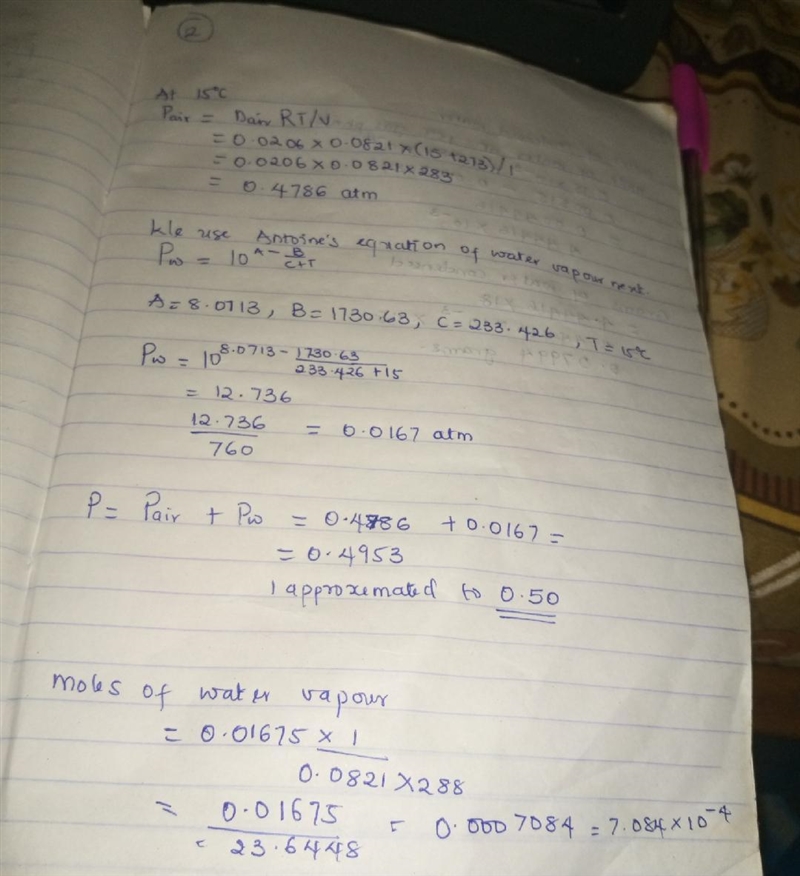 2
At 15°C
Pair = nair RT/V
= 0.0206 x 0.0821 x (15 + 273)/1
= 0.0206 x 0.0821 x 283
= 0.4786 atm
We use Antoine's equation of water vapour next
Pw = 10^A - B/C+T
A = 8.0713, B = 1730.63, C = 233.426, T = 15°C
Pw = 10^8.0713 - 1730.63/233.426 + 15
= 12.736
12.736/760 = 0.0167 atm
P = Pair + Pw = 0.4786 + 0.0167 =
= 0.4953
I approximated to 0.50
Moles of water vapour
= 0.01675 x 1
0.0821 x 288
= 0.01675 = 0.0007084 = 7.084 x 10^-4
= 23.6448